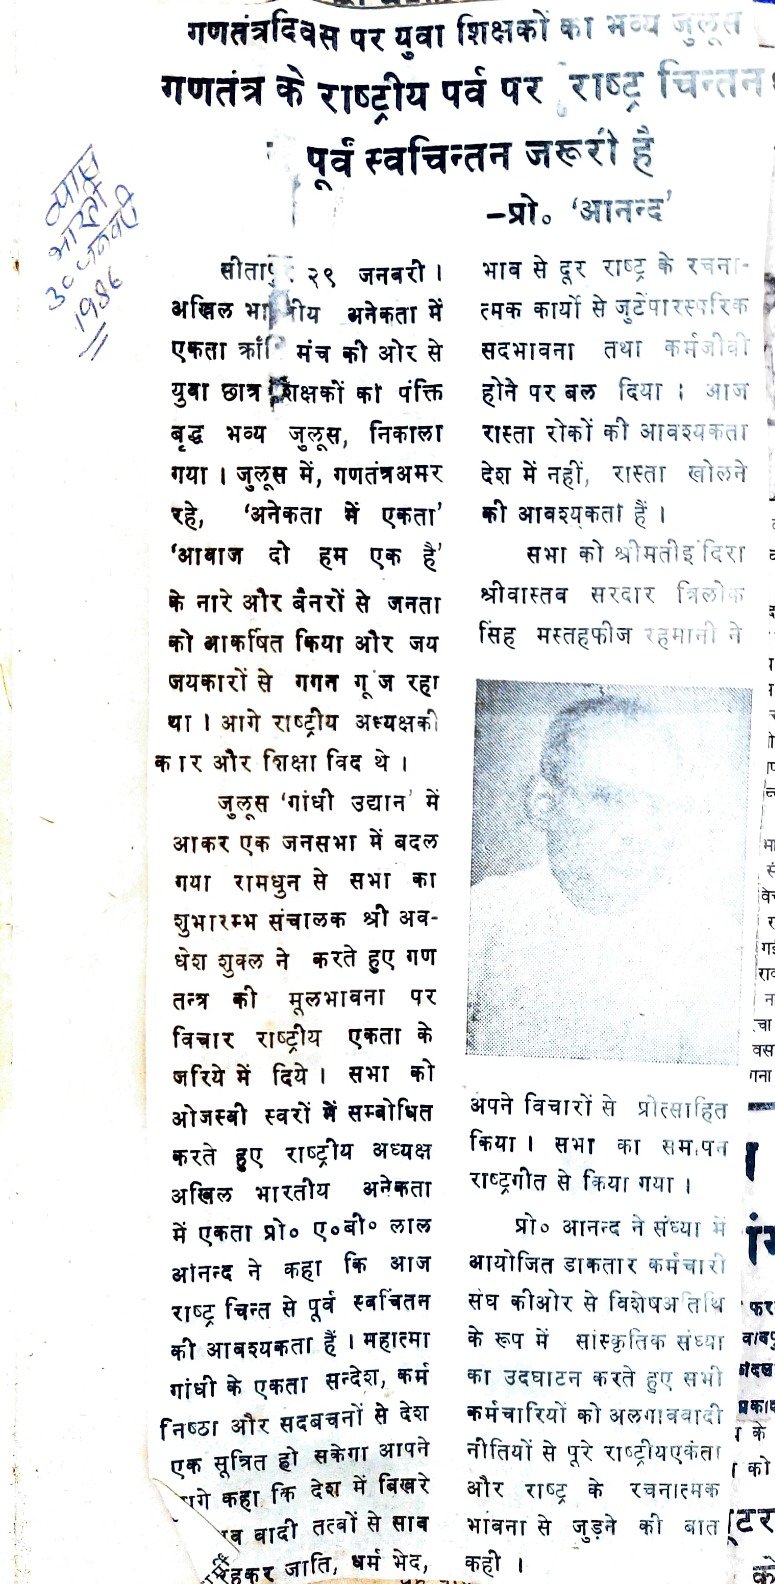 गणतंत्रदिवस पर युवा शिक्षकों का भव्य जुलूस
गणतंत्र के राष्ट्रीय पर्व पर राष्ट्र चिन्तन
पूर्व स्वचिन्तन जरूरी है
–प्रो० 'आनन्द'
व्यास
भारती
30 जनवरी
1986
सीतापुर २९ जनबरी ।
अखिल भारतीय अनेकता में
एकता क्राँति मंच की ओर से
युवा छात्र शिक्षकों का पंक्ति
बृद्ध भव्य जुलूस, निकाला
गया । जुलूस में, गणतंत्रअमर
रहे, 'अनेकता में एकता'
'आबाज दो हम एक है'
के नारे और बैनरों से जनता
को आकर्षित किया और जय
जयकारों से गगन गूंज रहा
था । आगे राष्ट्रीय अध्यक्षकी
कार और शिक्षा विद थे ।
जुलूस 'गांधी उद्यान' में
आकर एक जनसभा में बदल
गया रामधुन से सभा का
शुभारम्भ संचालक श्री अव-
धेश शुक्ल ने करते हुए गण
तन्त्र की मूलभावना पर
विचार राष्ट्रीय एकता के
जरिये में दिये । सभा को
ओजस्बी स्वरों में सम्बोधित
करते हुए राष्ट्रीय अध्यक्ष
अखिल भारतीय अनेकता
में एकता प्रो० ए०बी० लाल
आनन्द ने कहा कि आज
राष्ट्र चिन्त से पूर्व स्वचिंतन
की आबश्यकता हैं । महात्मा
गांधी के एकता सन्देश, कर्म
निष्ठा और सदबचनों से देश
एक सूत्रित हो सकेगा आपने
कहा कि देश में बिखरे
वादी तत्वों से साब
रहकर जाति, धर्म भेद,
भाव से दूर राष्ट्र के रचना-
त्मक कार्यो से जुटेंपारस्परिक
सदभावना तथा कर्मजीवी
होने पर बल दिया । आज
रास्ता रोकों की आवश्यकता
देश में नहीं, रास्ता खोलने
की आवश्यकता हैं ।
सभा को श्रीमतीइंदिरा
श्रीवास्तव सरदार त्रिलोक
सिंह मस्तहफीज रहमानी ने
अपने विचारों से प्रोत्साहित
किया । सभा का समापन
राष्ट्रगीत से किया गया ।
प्रो० आनन्द ने संध्या में
आयोजित डाकतार कर्मचारी
संघ कीओर से विशेषअतिथि
के रूप में सांस्कृतिक संध्या
का उदघाटन करते हुए सभी
कर्मचारियों को अलगाववादी
नीतियों से पूरे राष्ट्रीयएकता
और राष्ट्र के रचनात्मक
भावना से जुड़ने की बात
कही ।